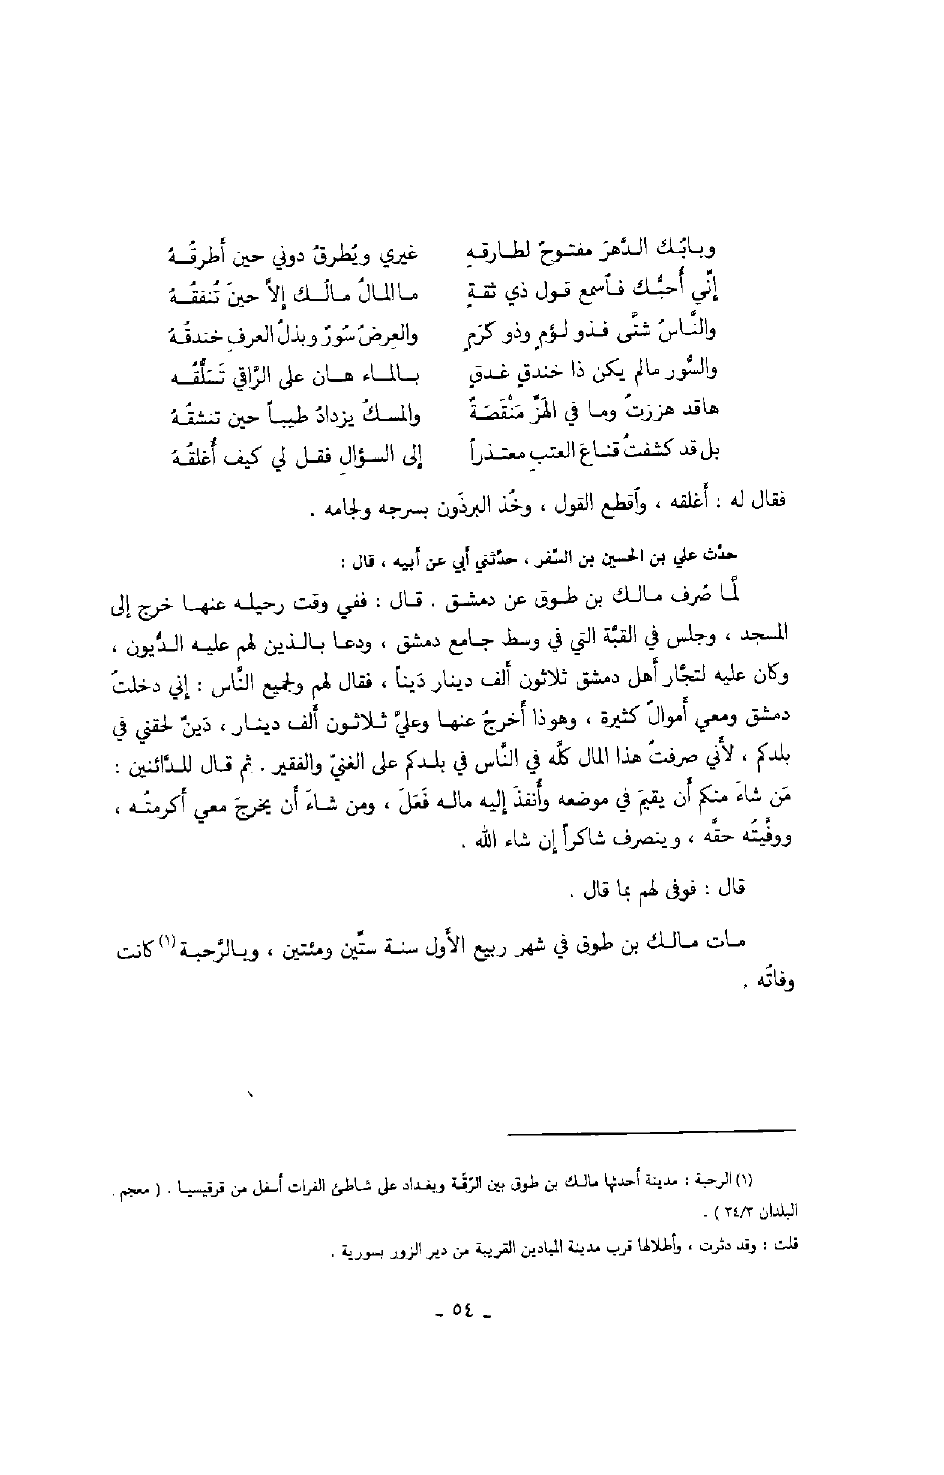 وبابُك الدَّهرَ مفتوحٌ لطارقهِ غيري ويُطرقُ دوني حين أطرقُهُ
إنِّي أُحبُّك فاسمع قول ذي ثقةٍ ما المالُ مالُك إلاَّ حينَ تُنفقُهُ
والنَّاسُ شتَّى فذو لؤمٍ وذو كرَمٍ والعِرضُ سُورٌ وبذلُ العرفِ خندقُهُ
والسُّور مالم يكن ذا خندقٍ غدقٍ بالماء هان على الرَّاقي تَسَلُّقُه
هاقد هززتُ وما في الهزِّ مَنْقَصَةٌ والمسكُ يزدادُ طيباً حين تنشقُهُ
بل قد كشفتُ قناعَ العتبِ معتذراً إلى السؤالِ فقل لي كيف أُغلقُهُ
فقال له : أَغلقه ، وأقطع القول ، وخُذ البرذَون بسرجه ولجامه .
حدَّث علي بن الحسين بن السَّفر ، حدَّثني أبي عن أبيه ، قال :
لمَّا صُرف مالك بن طوق عن دمشق . قال : ففي وقت رحيله عنها خرج إلى
المسجد ، وجلس في القبَّة التي في وسط جامع دمشق ، ودعا بالذين لهم عليه الدُّيون ،
وكان عليه لتجَّار أهل دمشق ثلاثون ألف دينار دَيناً ، فقال لهم ولجميع النَّاس : إني دخلتُ
دمشق ومعي أموالٌ كثيرة ، وهوذا أخرجُ عنها وعليَّ ثلاثون ألف دينار ، دَينٌ لحقني في
بلدكم ، لأنِّي صرفتُ هذا المال كلَّه في النَّاس في بلدكم على الغنيِّ والفقير . ثم قال للدَّائنين :
مَن شاءَ منكم أن يقيمَ في موضعه وأُنفذَ إليه ماله فَعَلَ ، ومن شاءَ أن يخرجَ معي أكرمتُه ،
ووفَّيتُه حقَّه ، وينصرف شاكراً إن شاء الله .
قال : فوفى لهم بما قال .
مات مالك بن طوق في شهر ربيع الأول سنة ستِّين ومئتين ، وبالرَّحبة (١) كانت
وفاتُه .
(١) الرحبة : مدينة أحدثها مالك بن طوق بين الرَّقَّة وبغداد على شاطئ الفرات أسفل من قرقيسيا . ( معجم
البلدان ٣٤/٣ ) .
قلت : وقد دثرت ، وأطلالها قرب مدينة الميادين القريبة من دير الزور بسورية .
- ٥٤ -